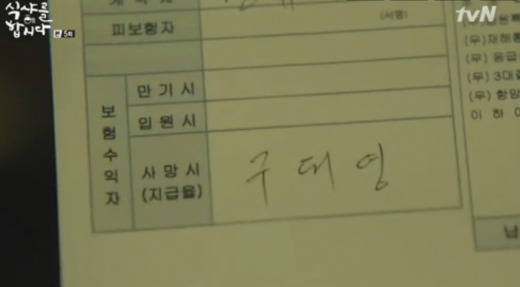 식샤를
합시다
5회
tvN
피보험자
(서명)
보험수익자
만기시
입원시
사망시
(지급율)
구대영
(무)재해
(무)응급
(무)3대
(무)항암
이 하 여